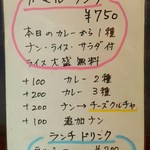 ¥750
本日のカレーから1種
ナン・ライス・サラダ付
ライス大盛無料
+100 カレー2種
+200 カレー3種
+200 ナン→チーズクルチャ
+100 追加ナン
ランチドリンク